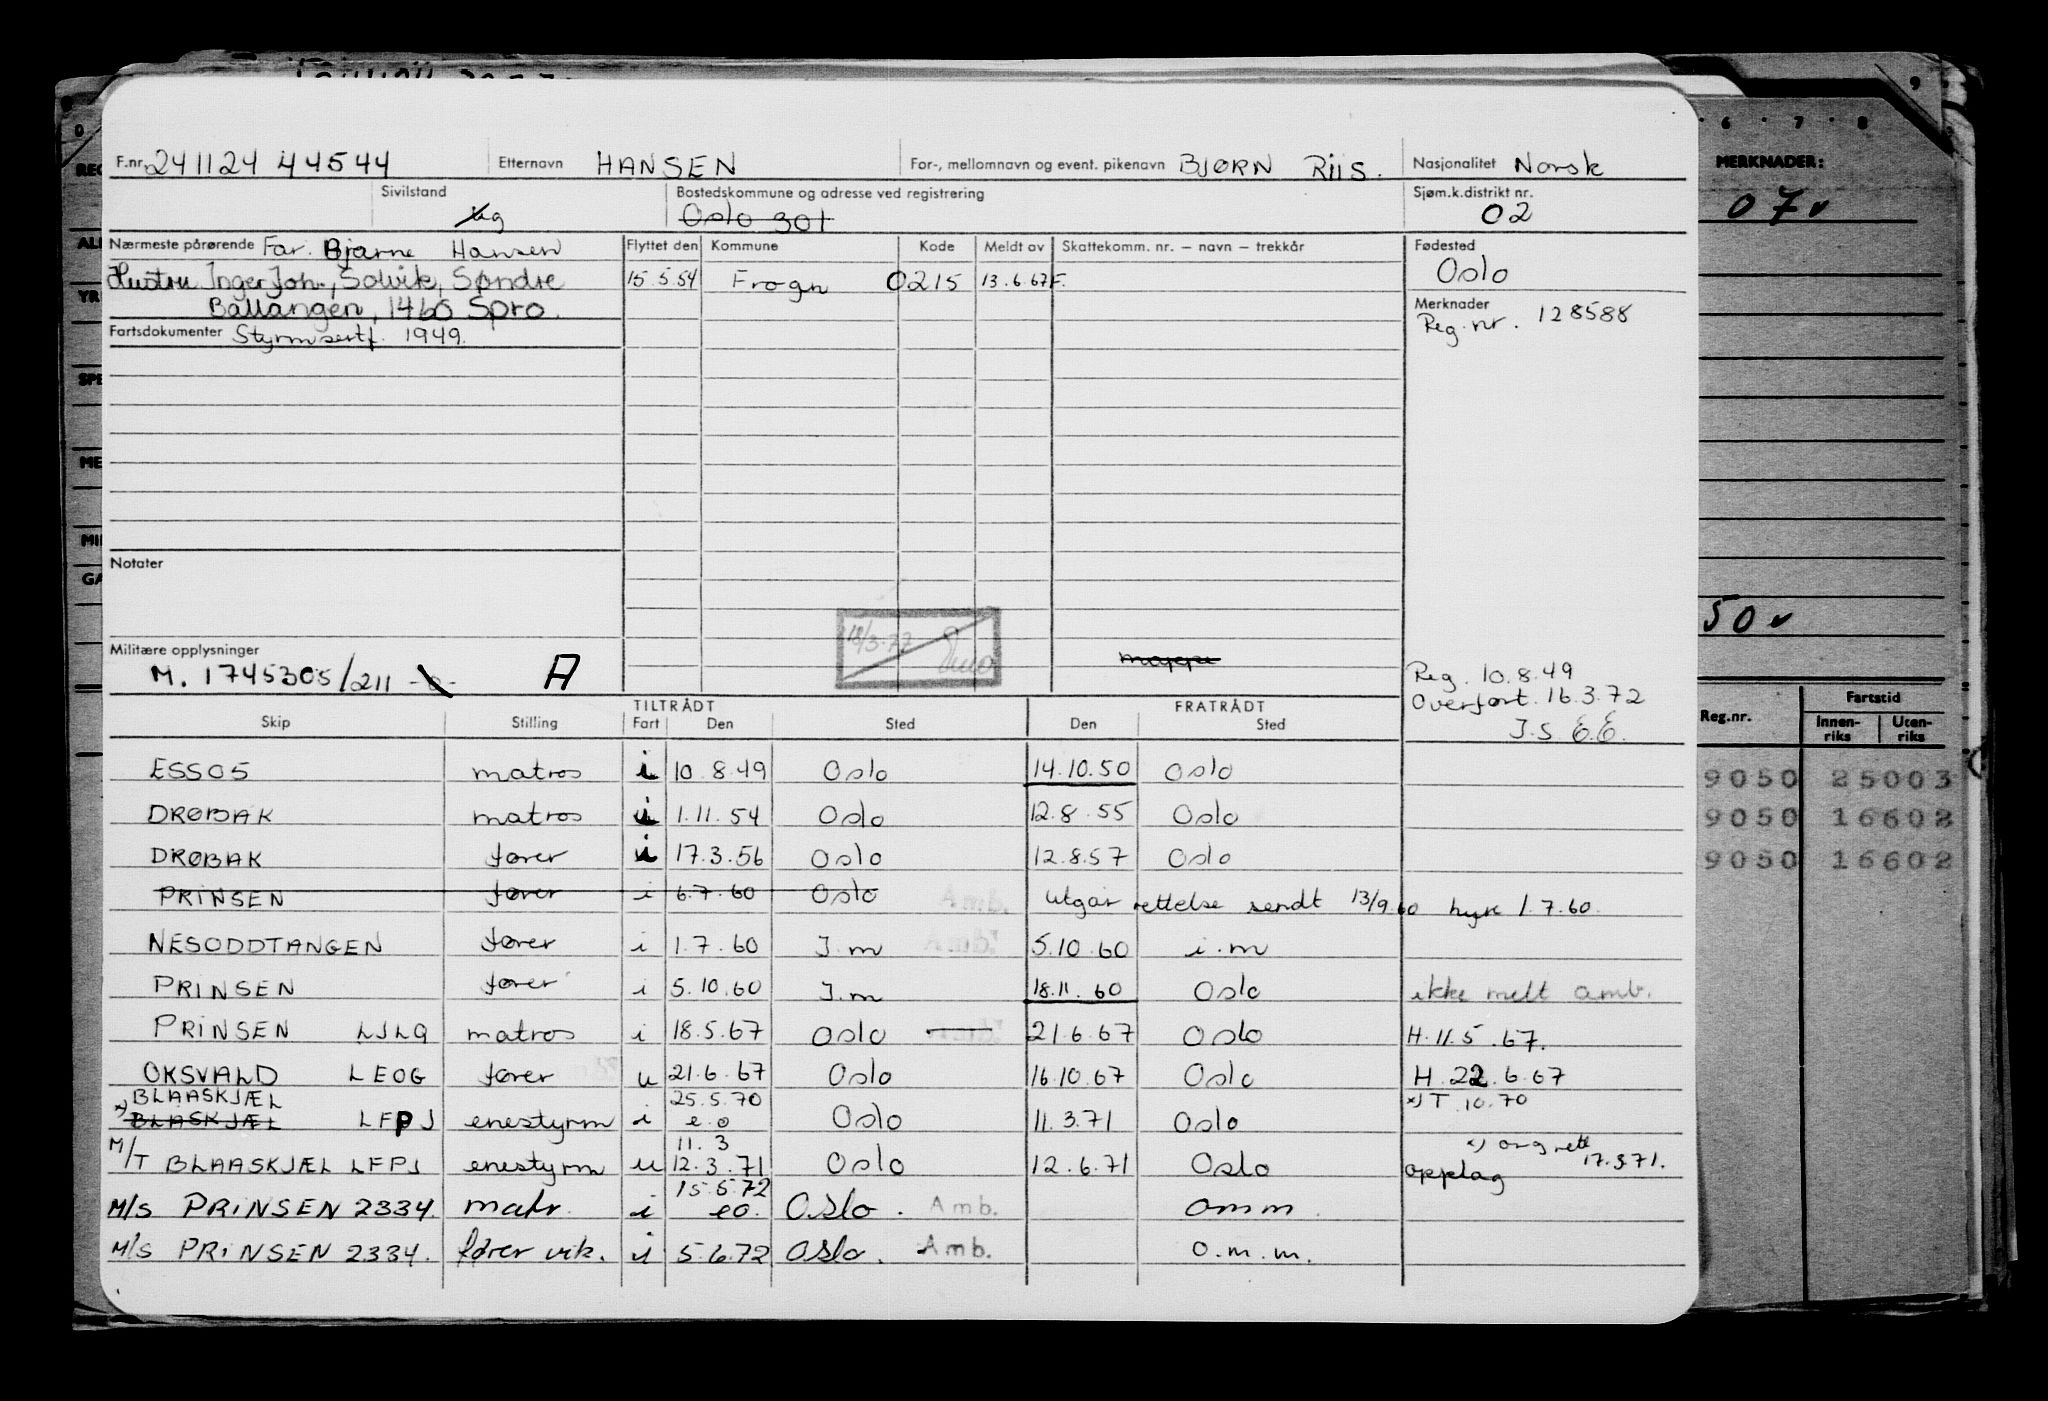 F.nr. 241124 44544 Etternavn HANSEN For-, mellomnavn og event. pikenavn BJØRN RIIS. Nasjonalitet Norsk
Sivilstand ug Bostedskommune og adresse ved registrering Oslo 301 Sjøm.k.distrikt nr. 02
Nærmeste pårørende Far. Bjarne Hansen Flyttet den Kommune Kode Meldt av Skattekomm. nr. – navn – trekkår Fødested Oslo
Hustru Inger Joh., Solvik, Søndre 15.5.54 Frogn 0215 13.6.67 F.
Ballangen, 1460 Spro. Merknader Reg. nr. 128588
Fartsdokumenter Styrmsertf. 1949.
Notater
18/3.77
Militære opplysninger
M. 1745305/211 A
Reg. 10.8.49
Overført. 16.3.72
J.S. E.E.
TILTRÅDT FRATRÅDT
Skip Stilling Fart Den Sted Den Sted
ESSO5 matros i 10.8.49 Oslo 14.10.50 Oslo
DRØBAK matros i 1.11.54 Oslo 12.8.55 Oslo
DRØBAK fører i 17.3.56 Oslo 12.8.57 Oslo
PRINSEN fører i 6.7.60 Oslo Amb. utgår rettelse sendt 13/9.60 hyre 1.7.60.
NESODDTANGEN fører i 1.7.60 I.m Amb. 5.10.60 i.m
PRINSEN fører i 5.10.60 I.m 18.11.60 Oslo ikke melt amb.
PRINSEN LJLQ matros i 18.5.67 Oslo 21.6.67 Oslo H.11.5.67.
OKSVALD LEOG fører u 21.6.67 Oslo 16.10.67 Oslo H.22.6.67
BLAASKJÆL 25.5.70 x) T 10.70
x) BLÅSKJÆL LFPJ enestyrm i e.o Oslo 11.3.71 Oslo
11.3 x) org rett 17.3.71.
M/T BLAASKJÆL LFPJ enestyrm u 12.3.71 Oslo 12.6.71 Oslo opplag
15.5.72
M/S PRINSEN 2334. matr. i eo. Oslo. Amb. omm.
M/S PRINSEN 2334. fører vik. i 5.6.72 Oslo. Amb. o.m.m.
0 6 7 8 9
MERKNADER:
07
50
Reg.nr. Fartstid
Innen-riks Uten-riks
9050 25003
9050 16602
9050 16602